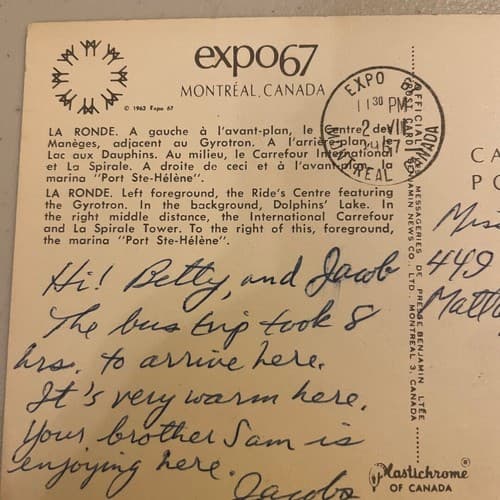 expo67
MONTRÉAL, CANADA
© 1963 Expo 67
LA RONDE. A gauche à l'avant-plan, le Centre des
Manèges, adjacent au Gyrotron. A l'arrière-plan, le
Lac aux Dauphins. Au milieu, le Carrefour International
et La Spirale. A droite de ceci et à l'avant-plan, la
marina "Port Ste-Hélène".
LA RONDE. Left foreground, the Ride's Centre featuring
the Gyrotron. In the background, Dolphins' Lake. In
the right middle distance, the International Carrefour
and La Spirale Tower. To the right of this, foreground,
the marina "Port Ste-Hélène".
EXPO
11 30 PM
2 VII
67
MONTREAL
CANADA
Hi! Betty, and Jacob
The bus trip took 8
hrs. to arrive here.
It's very warm here.
Your brother Sam is
enjoying here.
Jacobs
MESSAGERIES DE PRESSE BENJAMIN LTÉE
BENJAMIN NEWS CO., LTD. MONTREAL 3, CANADA
CA
PO
449
Plastichrome ®
OF CANADA